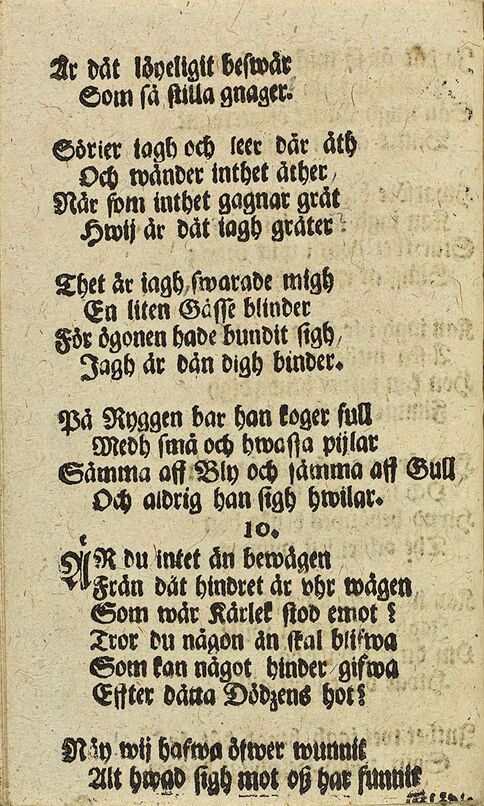 Är dät löyeligit beswär
Som så stilla gnager.
Sörier iagh och leer där äth
Och wänder inthet åther,
När som inthet gagnar grät
Hwij är dät iagh gräter?
Thet är iagh, swarade migh
En liten Gåsse blinder
För ögonen hade bundit sigh,
Jagh är dän digh binder.
På Ryggen bar han koger full
Medh små och hwassa pijlar
Sämma aff Bly och sämma aff Gull
Och aldrig han sigh hwilar.
10.
ÄR du intet än bewägen
Från dät hindret är vhr wägen
Som wår Kärlek stod emot?
Tror du någon än skal blifwa
Som kan något hinder gifwa
Effter dätta Dödzens hot?
Näy wij hafwa öfwer wunnit
Alt hwad sigh mot oß har funnit